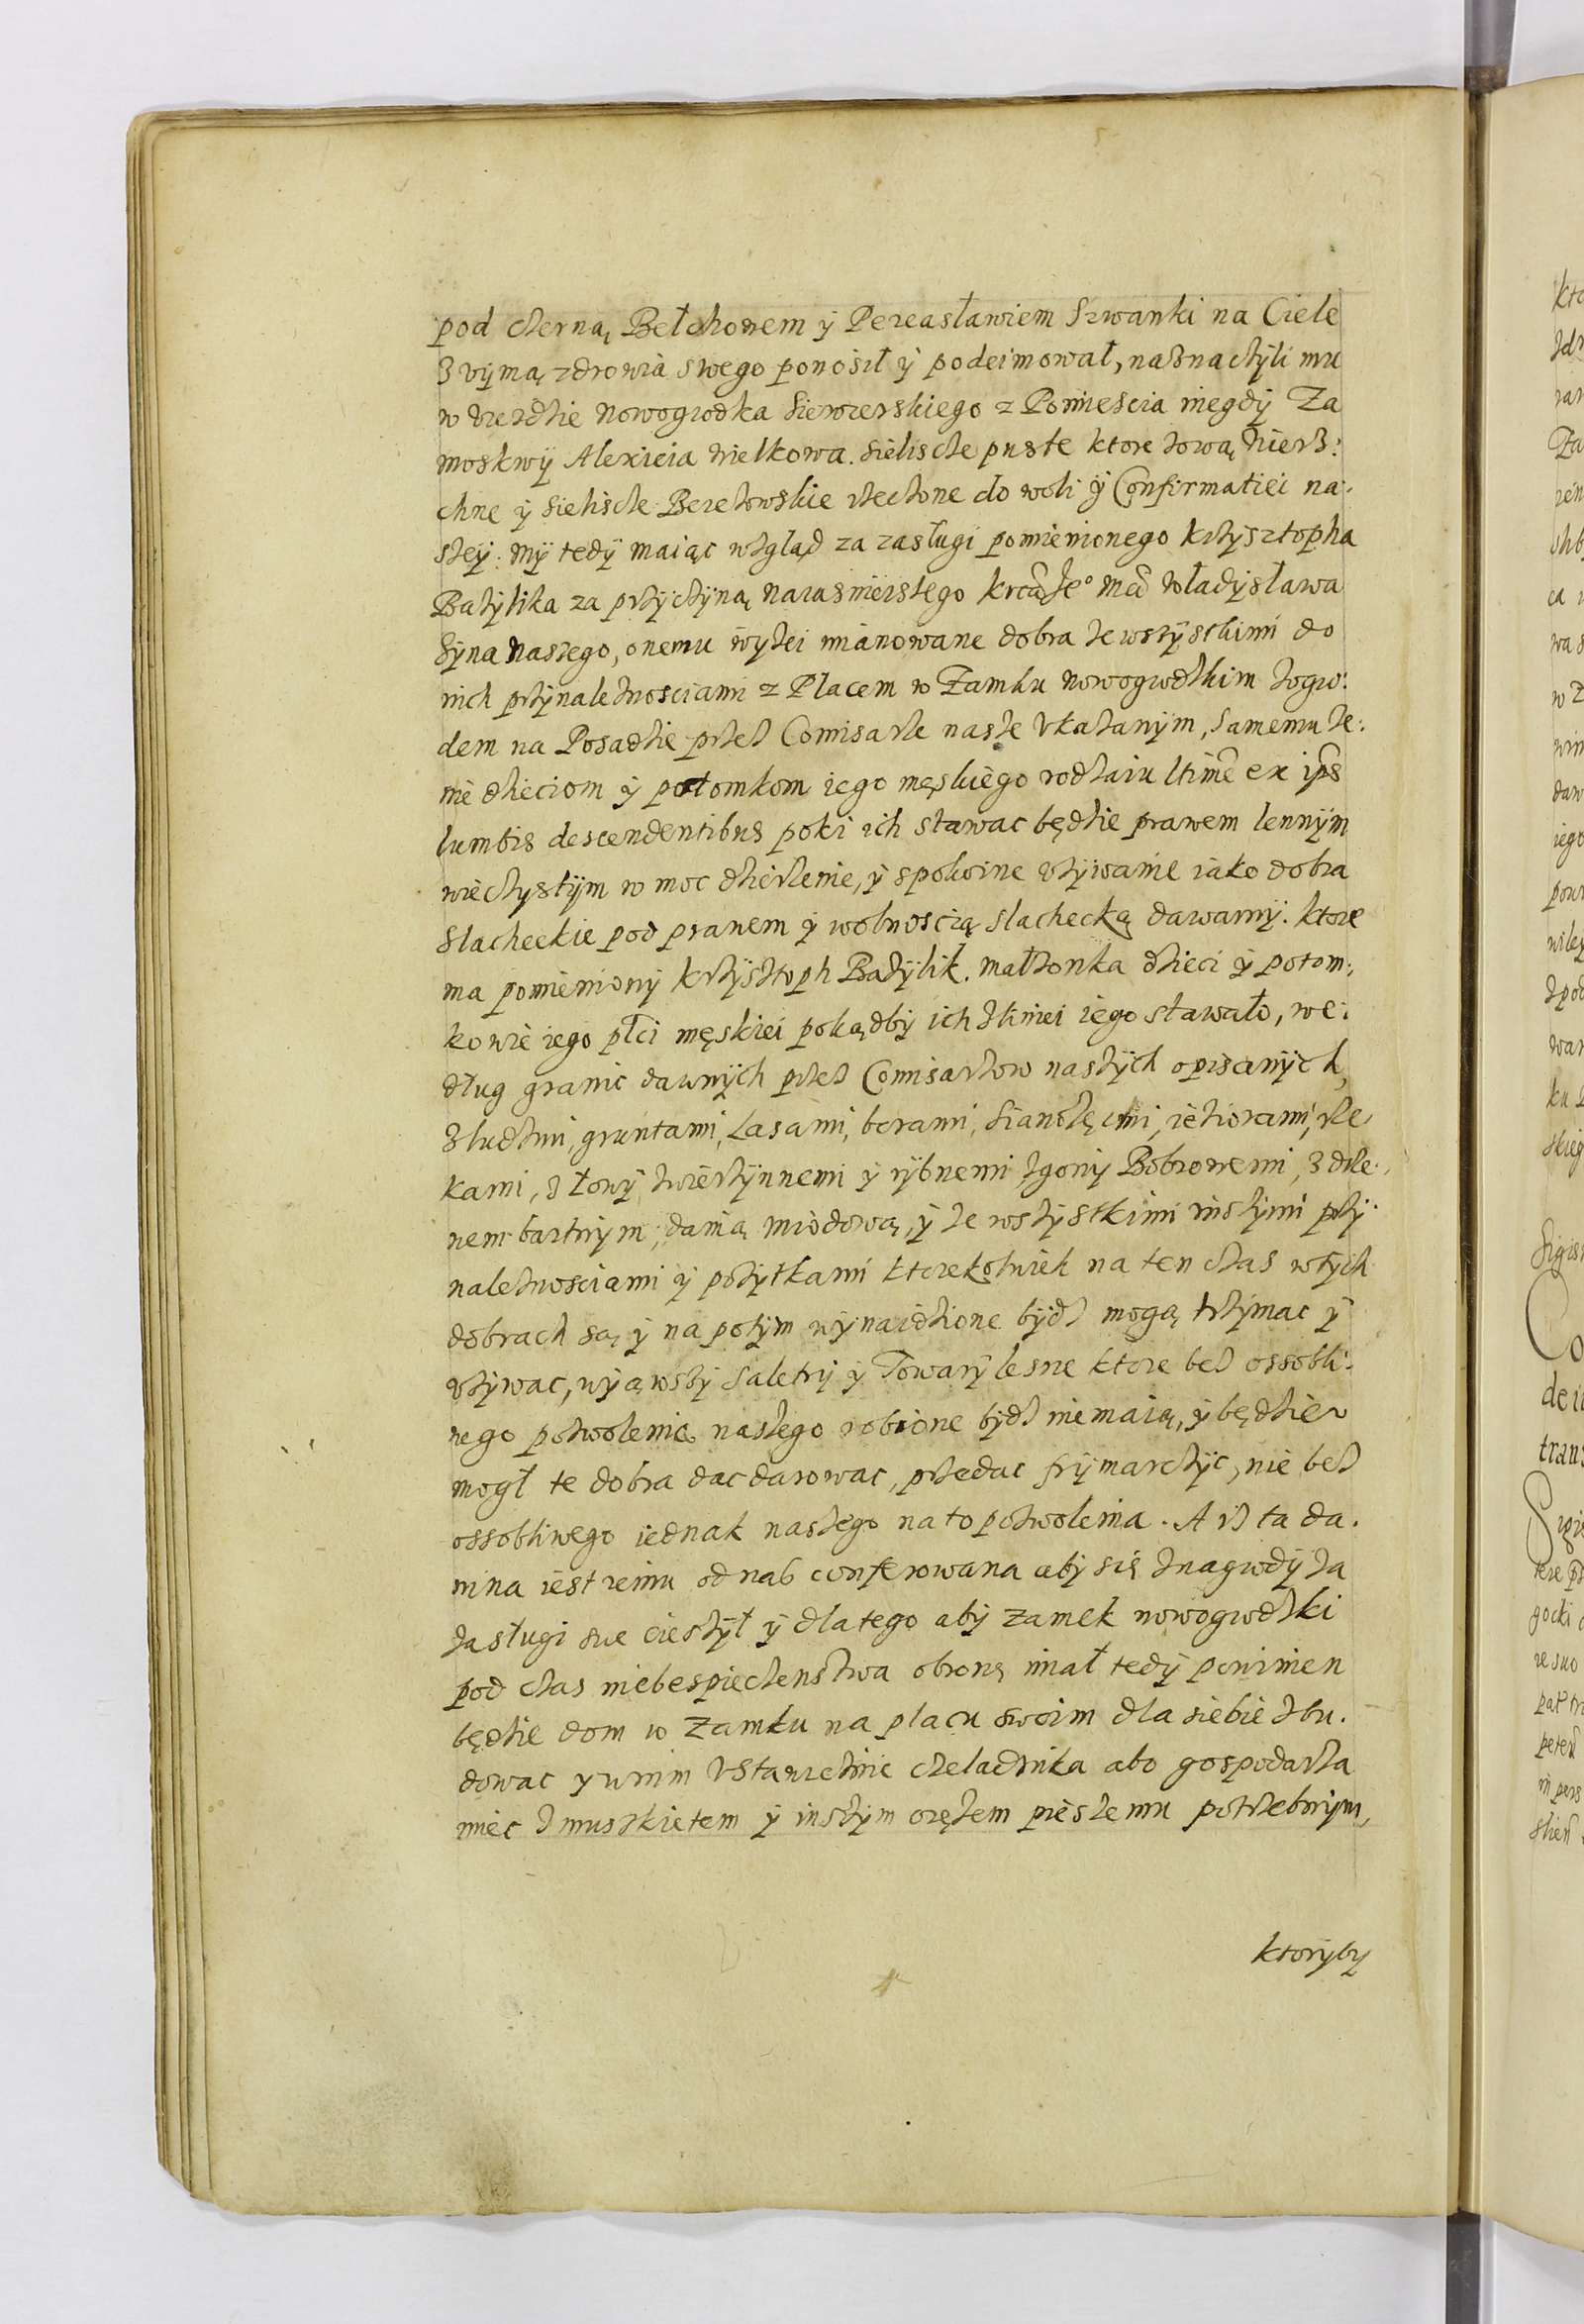 pod czerną, Bełchowem ÿ Pereasławiem Szwanki na Ciele
z vÿmą zdrowia swego ponosił ÿ podeimował, naznaczÿli mu
w vieździe Nowogrodka Siewierskiego z Pomiescia niegdÿ Za
moskwÿ Alexieia Wielkowa. Sieliscze puste ktore zową Wierz:
chne ÿ Sieliscze Berezowskie rzeczone do woli ÿ Confirmatiei na:
szeÿ: mÿ tedÿ maiąc wzgląd za zasługi pomienionego krzÿsztopha
Bazÿlika za przÿczÿną naiasnieiszego krcążę° mci Władÿsława
Sÿna Naszego, onemu wÿzei mianowane dobra ze wszÿstkimi do
nich przÿnaleznosciami z Placem w Zamku Nowogrodzkim zogro:
dem na Posadzie przez Comisarze nasze vkazanÿm, samemu ze:
nie dzieciom ÿ potomkom iego męskiego rodzaiu ltime ex ips
lumbis descendentibus poki ich stawac będzie prawem lennÿm
wieczystÿm w moc dzierzenie, ÿ spokoine vzÿwanie iako dobra
Slacheckie pod prawem ÿ wolnoscią slachecką dawamÿ. ktore
ma pomienionÿ krzÿsztoph Bazÿlik. małzonka dzieci ÿ potom:
kowie iego płci męskiei pokądbÿ ich zliniei iego stawało, we:
dług granic dawnÿch przez Comisarzow naszÿch opisanÿch,
zludzmi, gruntami, Lasami, borami, Sianożęcmi, ieziorami, rze
kami, z łowÿ zwierzÿnnemi ÿ rÿbnemi zgonÿ Bobrowemi, z drze:
wem bartnÿm, danią miodową, ÿ ze wszÿstkimi inszÿmi przÿ:
naleznosciami ÿ pozÿtkami ktorekolwiek na ten czas wtÿch
dobrach są ÿ na potÿm wÿnaidzione bÿdz mogą trzÿmac ÿ
vzÿwac, wÿiąwszÿ Saletrÿ ÿ Towarÿ lesne ktore bez ossobli:
wego pozwolenia naszego robione bÿdz niemaią, ÿ będzie
mogł te dobra dac darowac, przedac frÿmarczÿc, nie bez
ossobliwego iednak naszego na to pozwolenia. A iz ta da.
nina iest iemu od nas conferowana abÿ się znagrodÿ za
zasługi swe cieszÿł ÿ dlatego abÿ zamek nowogrodzki
pod czas niebespieczenstwa obronę miał tedÿ powinien
będzie dom w zamku na placu swoim dla siebie zbu.
dowac y wnim vstawicznie czeladnika abo gospodarza
miec z muszkietem ÿ inszÿm orężem pieszemu potrzebnÿm,
ktorÿby